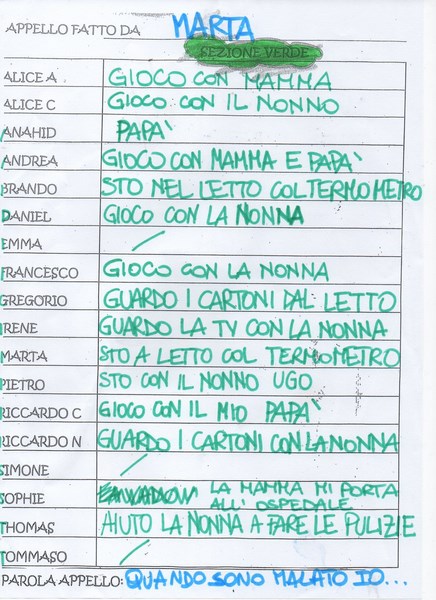 APPELLO FATTO DA MARTA
SEZIONE VERDE
ALICE A GIOCO CON MAMMA
ALICE C GIOCO CON IL NONNO
ANAHID PAPA'
ANDREA GIOCO CON MAMMA E PAPA'
BRANDO STO NEL LETTO COL TERMOMETRO
DANIEL GIOCO CON LA NONNA
EMMA /
FRANCESCO GIOCO CON LA NONNA
GREGORIO GUARDO I CARTONI DAL LETTO
IRENE GUARDO LA TV CON LA NONNA
MARTA STO A LETTO COL TERMOMETRO
PIETRO STO CON IL NONNO UGO
RICCARDO C GIOCO CON IL MIO PAPA'
RICCARDO N GUARDO I CARTONI CON LA NONNA
SIMONE /
SOPHIE LA MAMMA MI PORTA
ALL' OSPEDALE
THOMAS AIUTO LA NONNA A FARE LE PULIZIE
TOMMASO /
PAROLA APPELLO: QUANDO SONO MALATO IO...